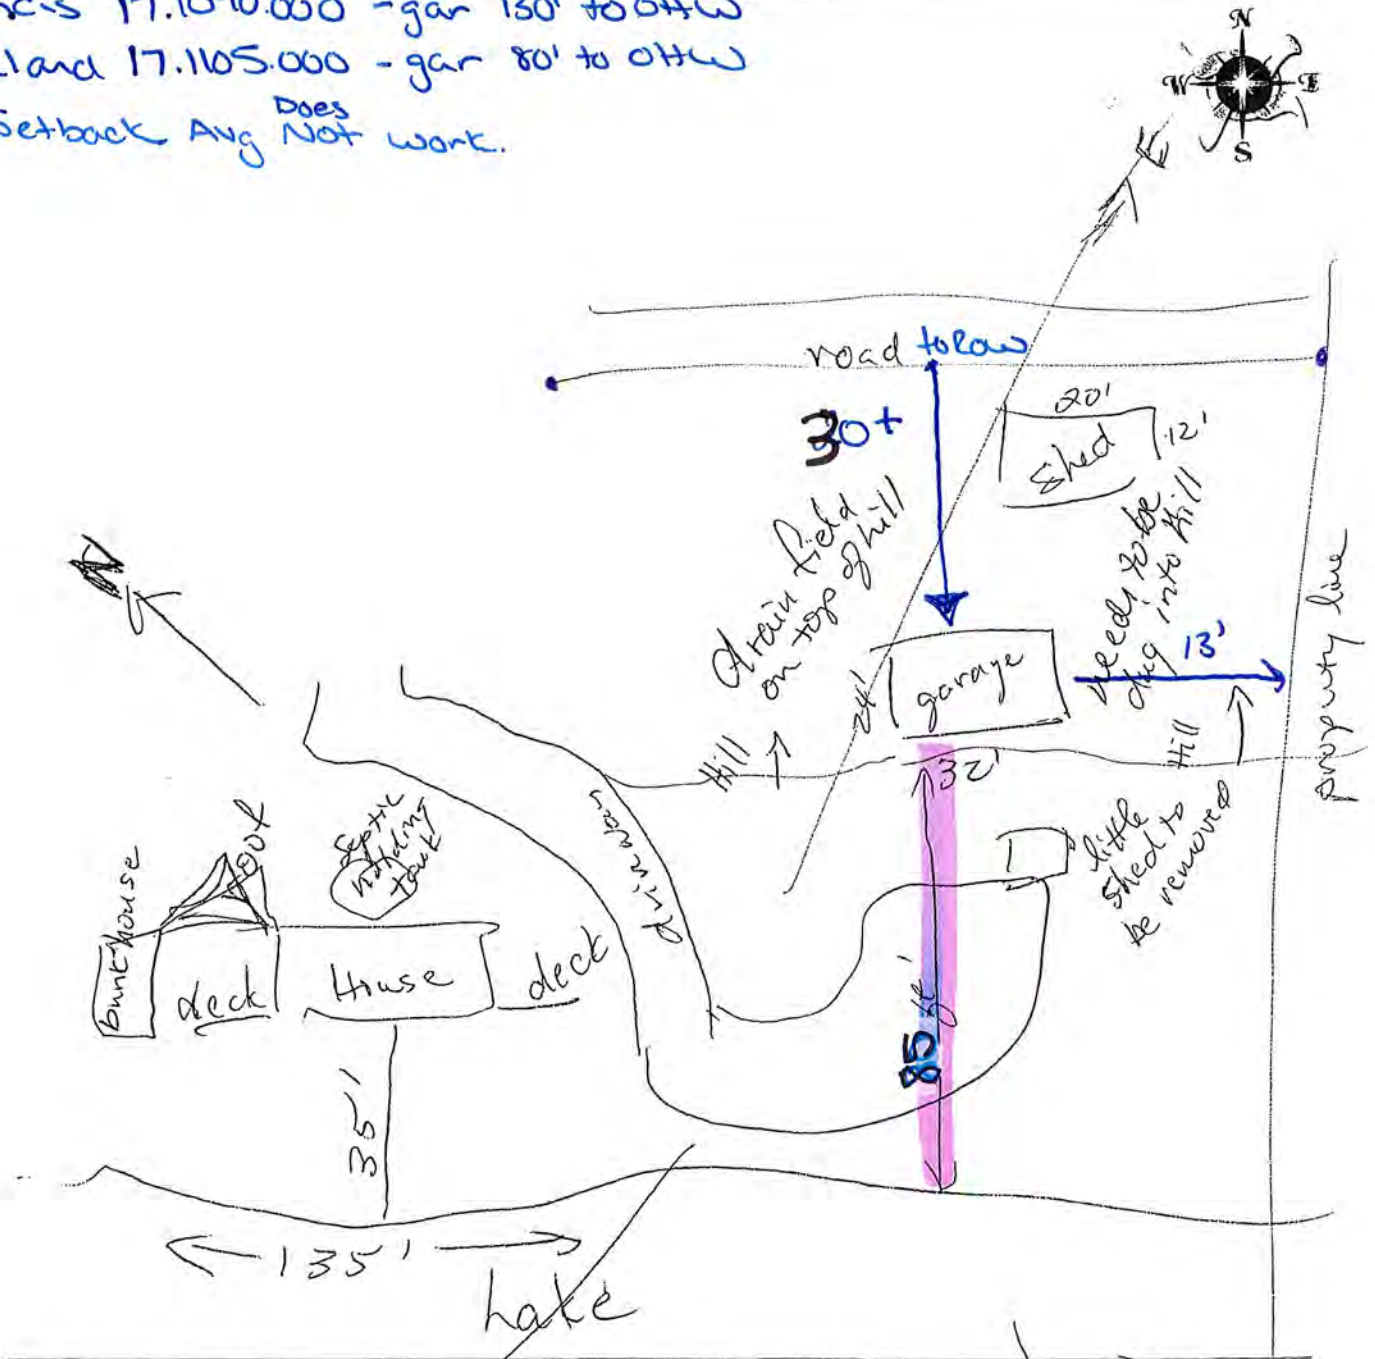 17.1090.000 - gar 130' to OHW
land 17.1105.000 - gar 80' to OHW
Setback Avg Does Not work.
N
W
E
S
E
road to Row
30+
20'
Shed
12'
drain field
on top of hill
needs to be
dug into Hill
13'
garage
24'
32'
property line
N
Hill
Hill
little
shed to
be removed
driveway
Septic
holding
tank
roof
bunkhouse
deck
House
deck
85'
35'
135'
Lake